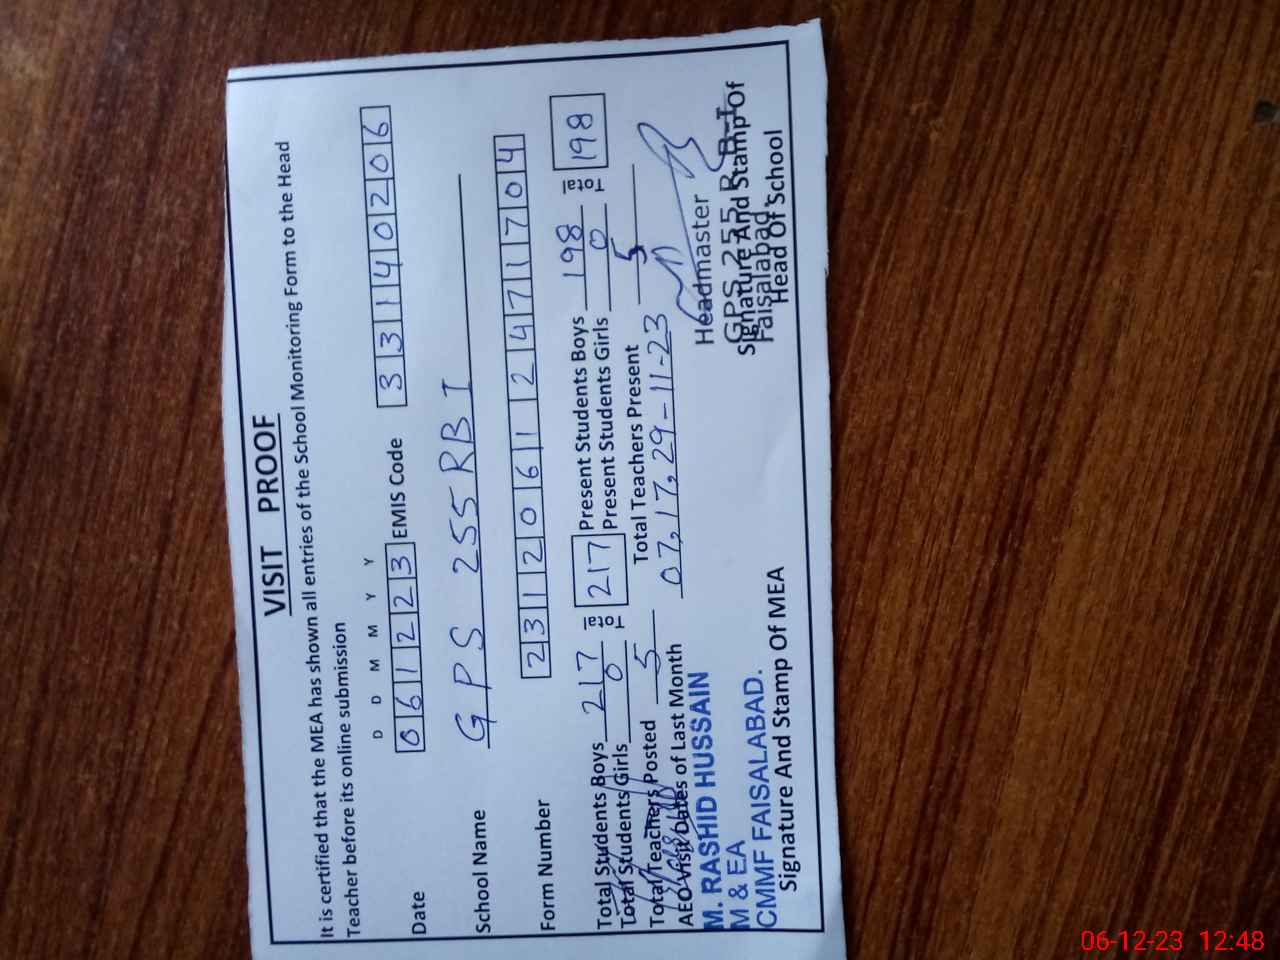 VISIT PROOF
It is certified that the MEA has shown all entries of the School Monitoring Form to the Head
Teacher before its online submission
D D M M Y Y
Date 061223 EMIS Code 33140206
School Name GPS 255 RB I
Form Number 2312061247 1704
Total Students Boys 217 Total 217 Present Students Boys 198 Total 198
Total Students Girls 0 Present Students Girls 0
Total Teachers Posted 5 Total Teachers Present 5
AEO Visit Dates of Last Month 07, 17, 29-11-23
M. RASHID HUSSAIN
M & EA
CMMF FAISALABAD.
Signature And Stamp Of MEA
Headmaster
GPS 255 R.B-I
Faisalabad.
Signature And Stamp Of
Head Of School
06-12-23 12:48